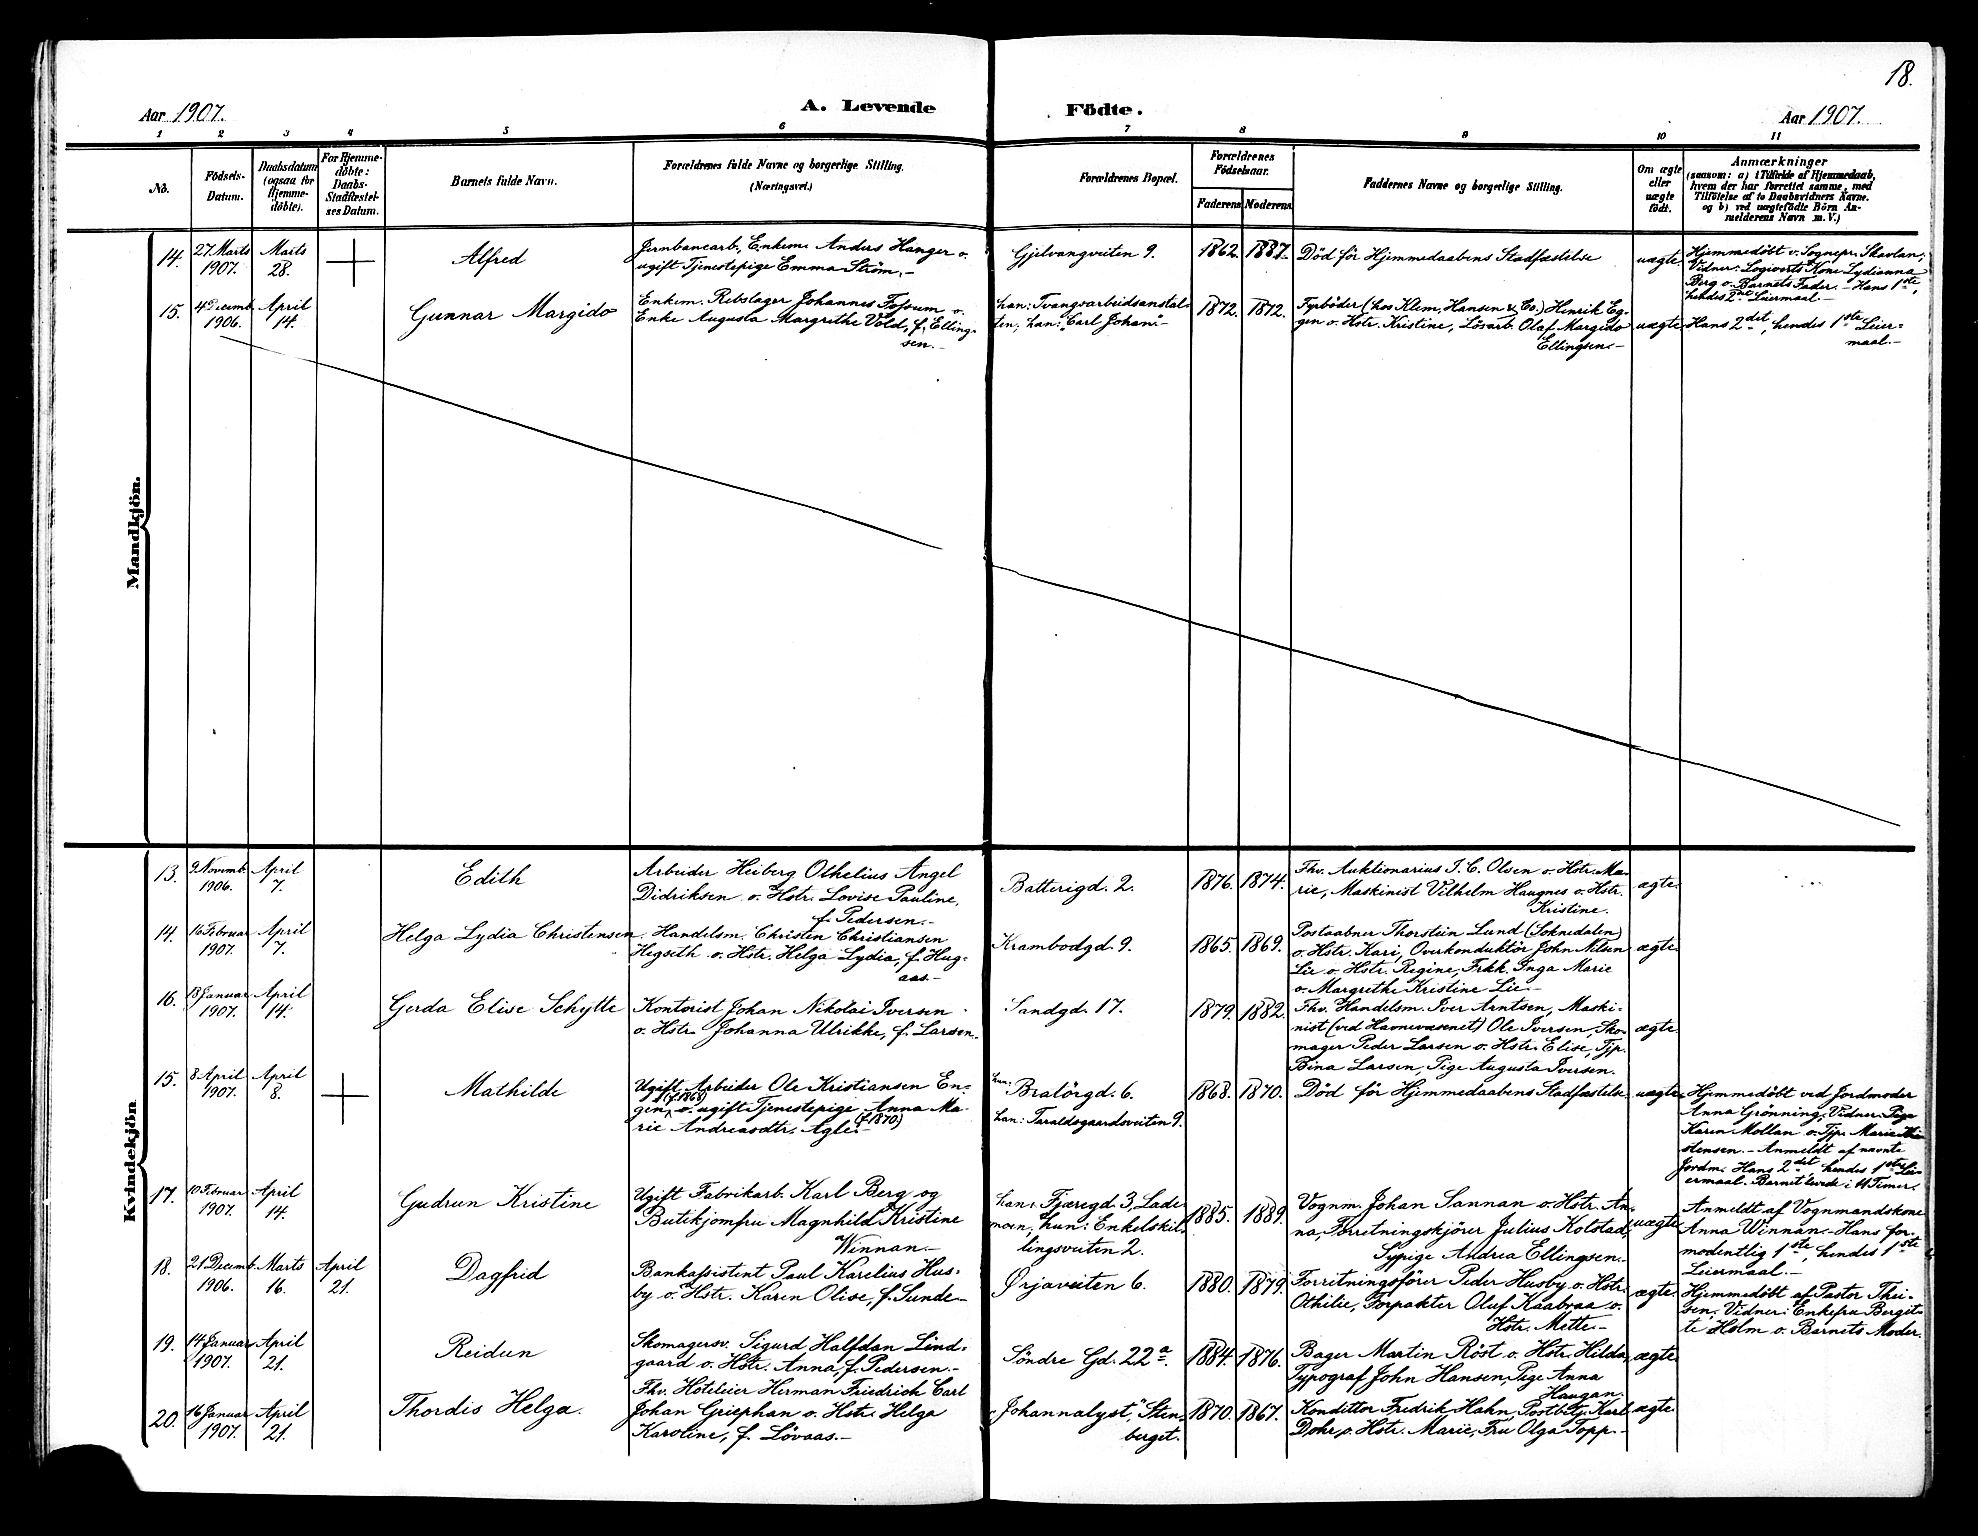 18.
Aar 1907.
A. Levende
Födte.
Aar 1907.
1 2 3 4 5 6 7 8 9 10 11
No.
Födsels-
Datum.
Daabsdatum
(ogsaa for
Hjemme-
döbte).
For Hjemme-
döbte:
Daabs-
Stadfæstel-
ses Datum.
Barnets fulde Navn.
Forældrenes fulde Navne og borgerlige Stilling.
(Næringsvei.)
Forældrenes Bopæl.
Forældrenes
Födselsaar.
Faderens Moderens
Faddernes Navne og borgerlige Stilling.
Om ægte
eller
uægte
födt.
Anmærkninger
(saasom: a) i Tilfælde af Hjemmedaab,
hvem der har forrettet samme, med
Tilföielse af to Daabsvidners Navne.
og b) ved uægtefödte Börn An-
melderens Navn m. V.)
Mandkjön.
14.
27 Marts
1907.
Marts
28.
Alfred
Jernbanearb. Enkem. Anders Hanger o.
ugift Tjenestepige Emma Ström.-
Gjelvangveiten 9.
1862. 1887.
Död för Hjemmedaabens Stadfæstelse
uægte.
Hjemmedöbt v. Sognepr. Skavlan;
Vidner: Logiverts Kone Lydianna
Berg o. Barnets Fader. - Hans 1ste,
hendes 2net Leiermaal.-
15.
4 Decemb.
1906.
April
14.
Gunnar Margido
Enkem. Rebslager Johannes Fossum o.
Enke Augusta Margrethe Vold, f. Elling-
sen.-
han: Tvangsarbeidsanstal-
ten, hun: "Carl Johan".-
1872. 1872.
Fyrböder (hos Klem, Hansen & Co.) Henrik Eg-
gen o. Hstr. Kristine, Lösarb. Olaf Margido
Ellingsen.-
uægte
Hans 2det, hendes 1ste Leier-
maal.-
Kvindekjön
13.
9 Novemb.
1906.
April
7.
Edith
Arbeider Heiberg Othelius Angel
Didriksen o. Hstr. Lovise Pauline,
f. Pedersen.-
Batterigd. 2.
1876. 1874.
Fhv. Auktionarius I. C. Olsen o. Hstr. Ma-
rie, Maskinist Vilhelm Haugnes o. Hstr.
Kristine.
ægte.
14.
16 Februar
1907.
April
7.
Helga Lydia Christensen
Handelsm. Christen Christiansen
Hegseth o. Hstr. Helga Lydia, f. Hug-
aas.-
Krambodgd. 9.
1865. 1869.
Postaabner Thorstein Lund (Soknedalen)
o. Hstr. Kari, Overkonduktör John Nilsen
Lie o. Hstr. Regine, Frkk. Inga Marie
o. Margrethe Kristine Lie.-
ægte.
16.
18 Januar
1907.
April
14.
Gerda Elise Schytte
Kontorist Johan Nikolai Iversen
o. Hstr. Johanna Ulrikke, f. Larsen.
Sandgd. 17.
1879. 1882.
Fhv. Handelsm. Iver Arntsen, Maski-
nist (ved Havnevæsenet) Ole Iversen, Sko-
mager Peder Larsen o. Hstr. Elise, Tjp.
Bina Larsen, Pige Augusta Iversen.
ægte.
15.
8 April
1907.
April
8.
Mathilde
Ugift Arbeider Ole Kristiansen En-
gen (f. 1868) o. ugift Tjenestepige Anna Ma-
rie Andreasdtr. Agle.- (f. 1870)
hun: Bralörgd. 6.
han: Taraldsgaardsveiten 9.
1868. 1870.
Död för Hjemmedaabens Stadfæstelse.
uægte.
Hjemmedöbt ved Jordmoder
Anna Grönning, Vidner: Pige
Karen Mollan o. Tjp. Marie Kri-
stensen.- Anmeldt af nævnte
Jordm. Hans 2det, hendes 1ste Lei-
ermaal. Barnet levede i 11 Timer.
17.
10 Februar
1907.
April
14.
Gudrun Kristine
Ugift Fabrikarb. Karl Berg og
Butikjomfru Magnhild Kristine
Winnan.-
han: Fjæregd. 3, Lade-
moen, hun: Enkelskil-
lingsveiten 2.
1885. 1889.
Vognm. Johan Sannan o. Hstr. An-
na, Forretningskjörer Julius Kolstad,
Sypige Andrea Ellingsen.-
uægte
Anmeldt af Vognmandskone
Anna Winnan.- Hans for-
modentlig 1ste, hendes 1ste
Leiermaal.-
18.
21 Decemb.
1906.
Marts
16.
April
21.
Dagfrid
Bankassistent Paul Karelius Hus-
by o. Hstr. Karen Olise, f. Sunde.-
Ørjaveiten 6.
1880. 1879.
Forretningsförer Peder Husby o. Hstr.
Othilie, Forpakter Oluf Kaabraa o.
Hstr. Mette.-
ægte.
Hjemmedöbt af Pastor Thei-
sen. Vidner: Enkefru Bergit-
te Holm o. Barnets Moder.
19.
14 Januar
1907.
April
21.
Reidun
Skomagersv. Sigurd Halfdan Lind-
gaard o. Hstr. Anna, f. Pedersen.-
Söndre Gd. 22a.
1884. 1876.
Bager Martin Röst o. Hstr. Hilda,
Typograf John Hansen, Pige Anna
Haugan.
ægte.
20.
16 Januar
1907.
April
21.
Thordis Helga.
Fhv. Hoteleier Herman Friedrich Carl
Johan Griephan o. Hstr. Helga
Karoline, f. Lövaas.-
"Johannalyst," Sten-
berget.
1870. 1867.
Konditor Fredrik Hahn, Postbetj. Karl
Dohr o. Hstr. Marie, Fru Olga Topp.-
ægte